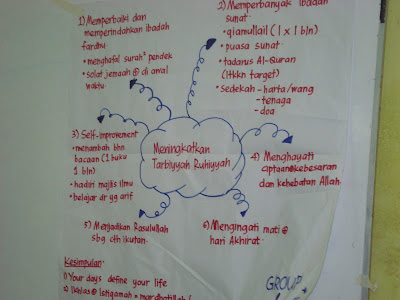 1) Memperbaiki dan
memperindahkan ibadah
fardhu
• menghafal surah² pendek
• solat jemaah @ di awal
waktu
2) Memperbanyak ibadah
sunat
• qiamullail (1 x 1 bln)
• puasa sunat
• tadarus Al-Quran
(ltkkn target)
• Sedekah - harta/wang
- tenaga
- doa
Meningkatkan
Tarbiyyah Ruhiyyah
3) Self-improvement
• menambah bhn
bacaan (1 buku
1 bln)
• hadiri majlis ilmu
• belajar dr yg arif
4) Menghayati
ciptaan@kebesaran
dan kehebatan Allah
5) Menjadikan Rasulullah
sbg cth ikutan.
6) Mengingati mati @
hari Akhirat.
Kesimpulan:
1) Your days define your life
2) Ikhlas @ istiqamah = mardhatillah!
GROUP